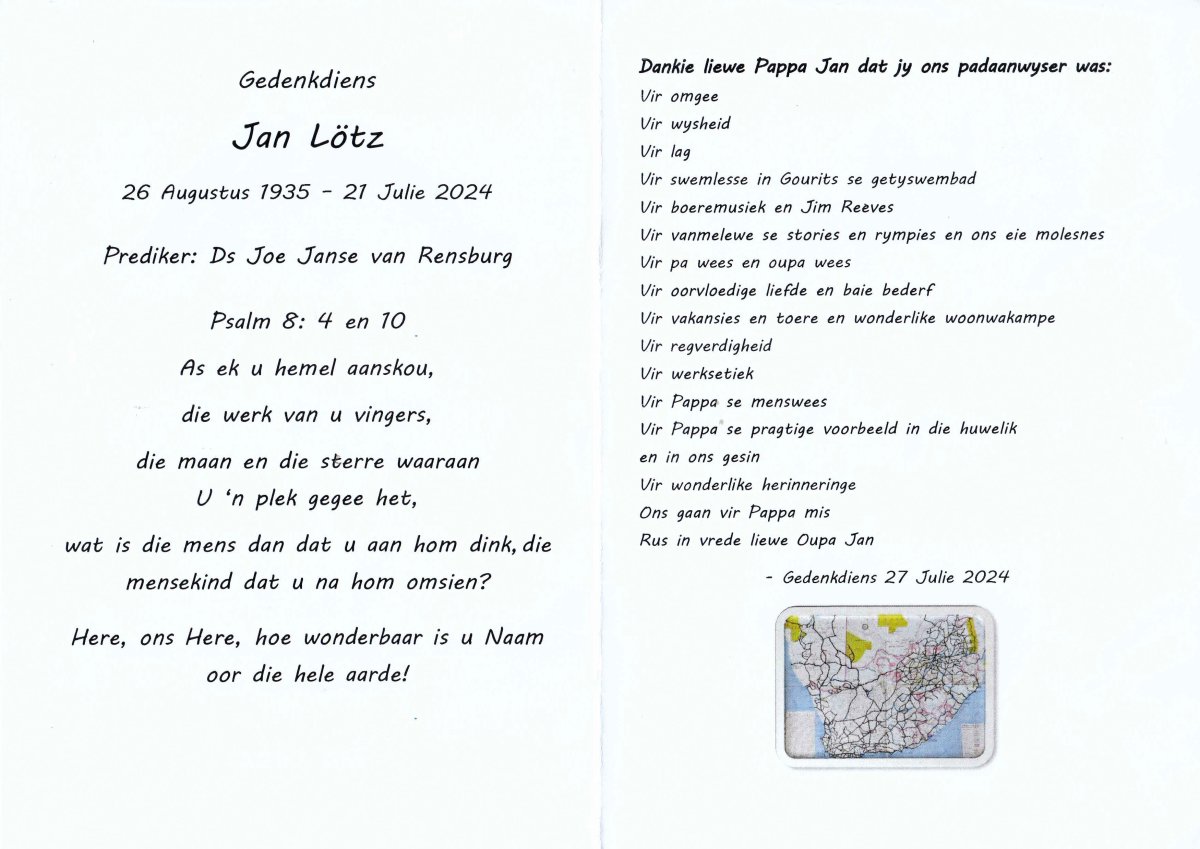 Gedenkdiens
Jan Lötz
26 Augustus 1935 – 21 Julie 2024
Prediker: Ds Joe Janse van Rensburg
Psalm 8: 4 en 10
As ek u hemel aanskou,
die werk van u vingers,
die maan en die sterre waaraan
U ‘n plek gegee het,
wat is die mens dan dat u aan hom dink, die
mensekind dat u na hom omsien?
Here, ons Here, hoe wonderbaar is u Naam
oor die hele aarde!
Dankie liewe Pappa Jan dat jy ons padaanwyser was:
Vir omgee
Vir wysheid
Vir lag
Vir swemlesse in Gourits se getyswembad
Vir boeremusiek en Jim Reeves
Vir vanmelewe se stories en rympies en ons eie molesnes
Vir pa wees en oupa wees
Vir oorvloedige liefde en baie bederf
Vir vakansies en toere en wonderlike woonwakampe
Vir regverdigheid
Vir werksetiek
Vir Pappa se menswees
Vir Pappa se pragtige voorbeeld in die huwelik
en in ons gesin
Vir wonderlike herinneringe
Ons gaan vir Pappa mis
Rus in vrede liewe Oupa Jan
- Gedenkdiens 27 Julie 2024